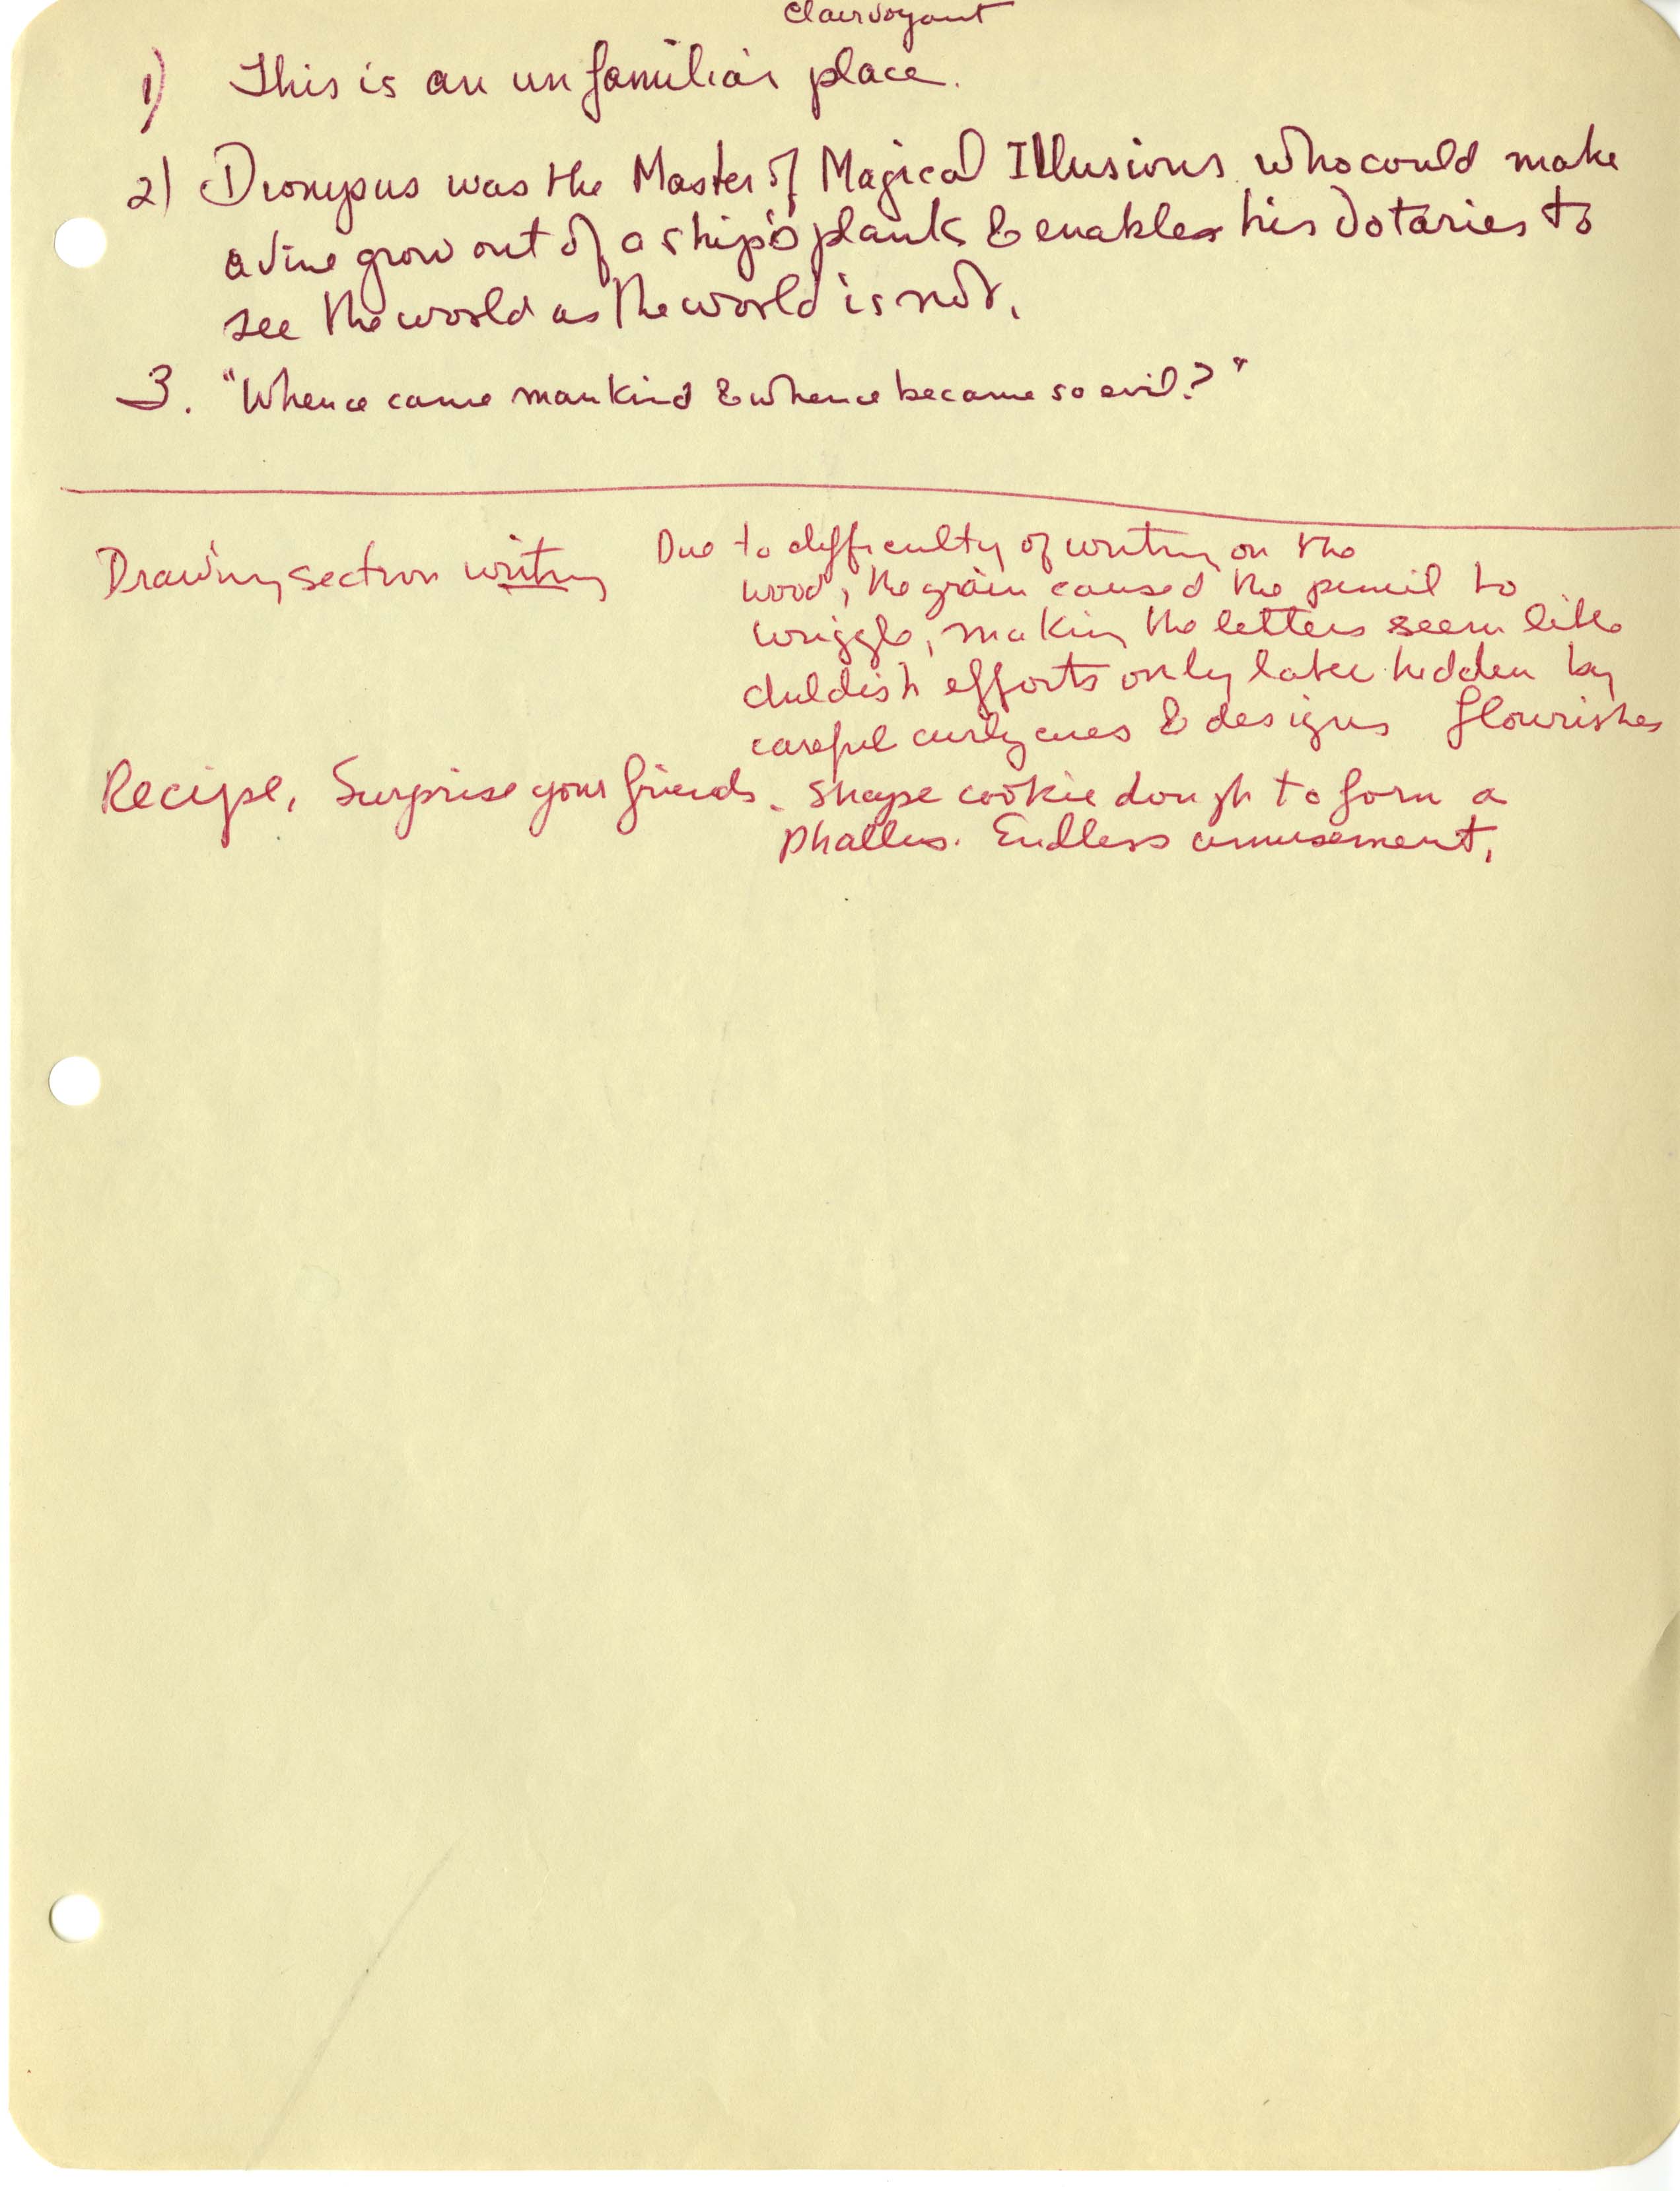 Clairvoyant
1) This is an unfamiliar place.
2) Dionysus was the Master of Magical Illusions who could make
a vine grow out of a ship's plank & enables his votaries to
see the world as the world is not.
3. "Whence came mankind & whence became so evil?"
Drawing section writing Due to difficulty of writing on the
wood, the grain caused the pencil to
wriggle, making the letters seem like
childish efforts only later hidden by
careful curlycues & designs flourishes
Recipe, Surprise your friends. Shape cookie dough to form a
phallus. Endless amusement.